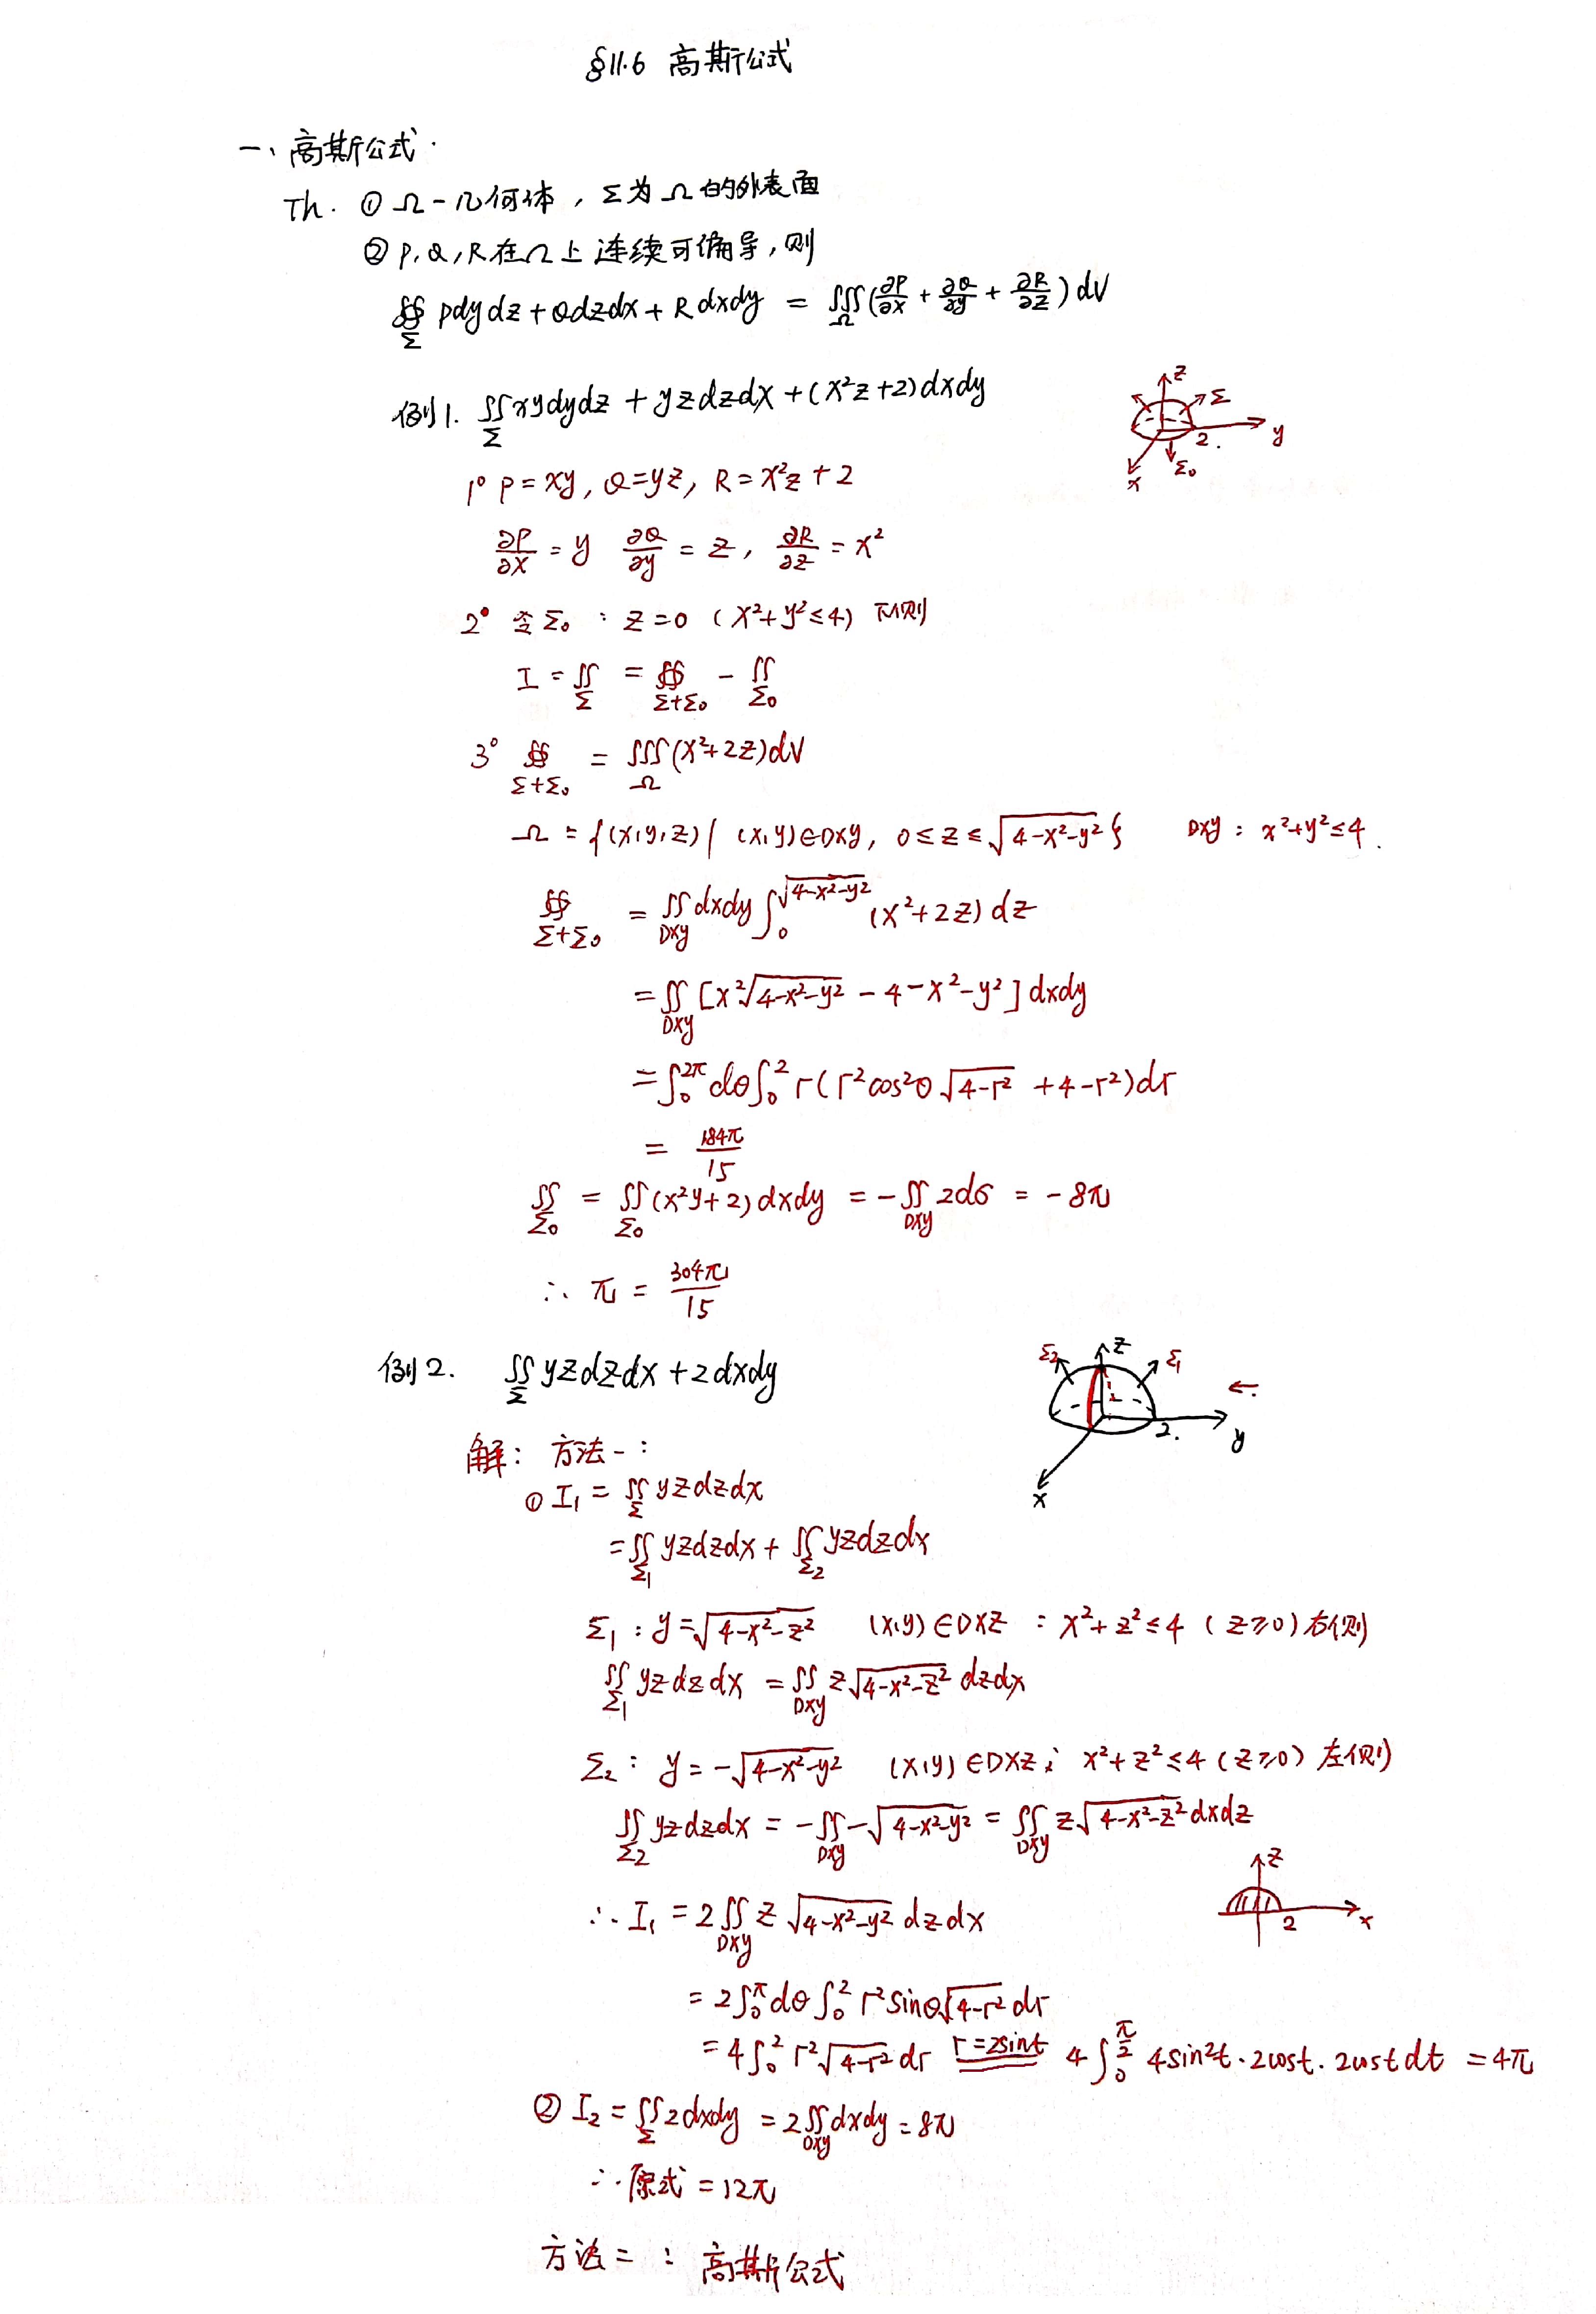 §11.6 高斯公式
一、高斯公式.
Th. ① Ω-几何体, Σ为Ω的外表面
② P,Q,R在Ω上连续可偏导,则
∯_Σ Pdydz+Qdzdx+Rdxdy = ∭_Ω(∂P/∂x + ∂Q/∂y + ∂R/∂z)dV
例1. ∬_Σ xydydz + yzdzdx + (x²z+2)dxdy
z Σ 2. y Σ₀ x
1° P=xy, Q=yz, R=x²z+2
∂P/∂x = y ∂Q/∂y = z, ∂R/∂z = x²
2° 令Σ₀ : z=0 (x²+y²≤4) 下侧
I = ∬_Σ = ∯_{Σ+Σ₀} - ∬_{Σ₀}
3° ∯_{Σ+Σ₀} = ∭_Ω(x²+2z)dV
Ω = {(x,y,z) | (x,y)∈Dxy, 0≤z≤√(4-x²-y²)} Dxy : x²+y²≤4.
∯_{Σ+Σ₀} = ∬_{Dxy} dxdy ∫₀^{√(4-x²-y²)} (x²+2z)dz
= ∬_{Dxy} [x²√(4-x²-y²) - 4-x²-y²] dxdy
= ∫₀^{2π} dθ ∫₀² r(r²cos²θ√(4-r²) +4-r²)dr
= 184π/15
∬_{Σ₀} = ∬_{Σ₀}(x²y+2)dxdy = -∬_{Dxy} 2dσ = -8π
∴ π = 304π/15
例2. ∬_Σ yzdzdx+2dxdy
Σ₂ z Σ₁ ← 2. y x
解: 方法一:
① I₁ = ∬_Σ yzdzdx
= ∬_{Σ₁} yzdzdx + ∬_{Σ₂} yzdzdx
Σ₁ : y=√(4-x²-z²) (x,y)∈Dxz : x²+z²≤4 (z≥0)右侧
∬_{Σ₁} yzdzdx = ∬_{Dxy} z√(4-x²-z²) dzdx
Σ₂ : y=-√(4-x²-y²) (x,y)∈Dxz: x²+z²≤4 (z≥0) 左侧
∬_{Σ₂} yzdzdx = -∬_{Dxy} -√(4-x²-y²) = ∬_{Dxy} z√(4-x²-z²) dxdz
z 2 x
∴ I₁ = 2∬_{Dxy} z√(4-x²-y²) dzdx
= 2∫₀^π dθ ∫₀² r²sinθ√(4-r²) dr
= 4∫₀² r²√(4-r²) dr r=2sint 4∫₀^{π/2} 4sin²t·2cost·2costdt = 4π
② I₂ = ∬_Σ 2dxdy = 2∬_{Dxy} dxdy = 8π
∴ 原式 = 12π
方法二: 高斯公式